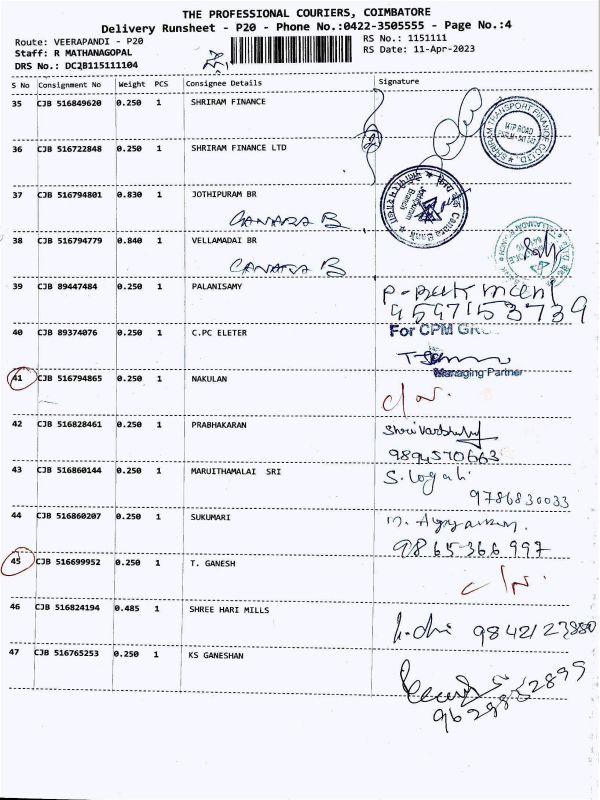 THE PROFESSIONAL COURIERS, COIMBATORE
Delivery Runsheet - P20 - Phone No.:0422-3505555 - Page No.:4
Route: VEERAPANDI - P20
Staff: R MATHANAGOPAL
DRS No.: DC2B115111104
RS No.: 1151111
RS Date: 11-Apr-2023
S No Consignment No Weight PCS Consignee Details Signature
35 CJB 516849620 0.250 1 SHRIRAM FINANCE
SHRIRAM TRANSPORT FINANCE CO LTD.
MTP ROAD
36 CJB 516722848 0.250 1 SHRIRAM FINANCE LTD
37 CJB 516794801 0.830 1 JOTHIPURAM BR
CANARA B
Canara Bank
Jothipuram
Branch
38 CJB 516794779 0.840 1 VELLAMADAI BR
CANARA B
39 CJB 89447484 0.250 1 PALANISAMY
9597153739
40 CJB 89374076 0.250 1 C.PC ELETER
For CPM
Managing Partner
41 CJB 516794865 0.250 1 NAKULAN
42 CJB 516828461 0.250 1 PRABHAKARAN
9894570663
43 CJB 516860144 0.250 1 MARUITHAMALAI SRI
S. Logali
9786830033
44 CJB 516860207 0.250 1 SUKUMARI
9865366997
45 CJB 516699952 0.250 1 T. GANESH
46 CJB 516824194 0.485 1 SHREE HARI MILLS
9842123880
47 CJB 516765253 0.250 1 KS GANESHAN
9629852899